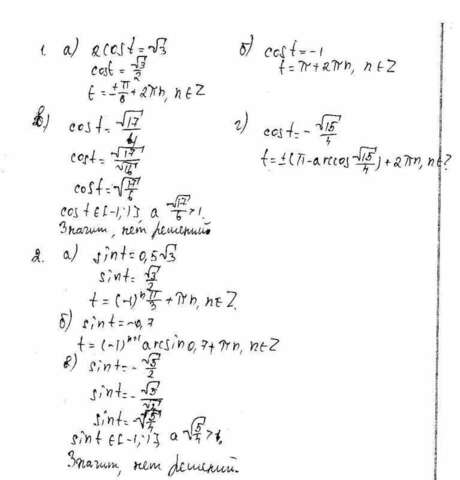 1. а) 2cost=√3
cost=√3/2
t=±π/6+2πn, n∈Z
б) cost=-1
t=π+2πn, n∈Z
в) cost=√17/4
cost=√17/√16
cost=√17/
cost∈[-1;1], а √17/6>1.
Значит, нет решений.
г) cost=-√15/4
t=±(π-arccos√15/4)+2πn, n∈Z
2. а) sint=0,5√3
sint=√3/2
t=(-1)ⁿπ/3+πn, n∈Z.
б) sint=-0,7
t=(-1)ⁿ⁺¹arcsin0,7+πn, n∈Z
в) sint=-√5/2
sint=-√5/
sint=-√5/4
sint∈[-1;1], а √5/4>1.
Значит, нет решений.